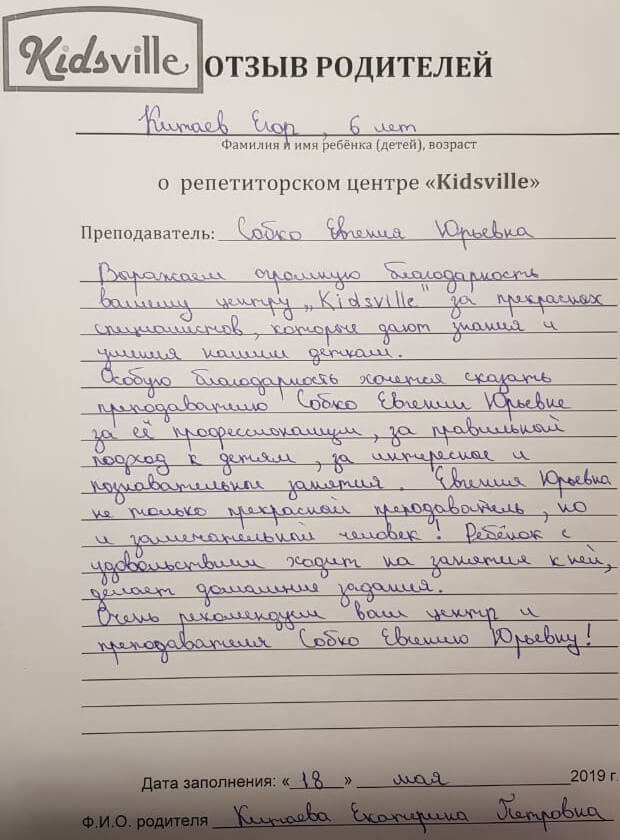 Kidsville
ОТЗЫВ РОДИТЕЛЕЙ
Китаев Егор, 6 лет
Фамилия и имя ребёнка (детей), возраст
о репетиторском центре «Kidsville»
Преподаватель: Собко Евгения Юрьевна
Выражаем огромную благодарность
вашему центру „Kidsville" за прекрасных
специалистов, которые дают знания и
умения нашим деткам.
Особую благодарность хочется сказать
преподавателю Собко Евгении Юрьевне
за её профессионализм, за правильный
подход к детям, за интересное и
познавательной занятия. Евгения Юрьевна
не только прекрасной преподаватель, но
и замечательной человек! Ребёнок с
удовольствием ходит на занятия к ней,
делает домашние задания.
Очень рекомендуем ваш центр и
преподавателя Собко Евгению Юрьевну!
Дата заполнения: «18» мая 2019 г.
Ф.И.О. родителя Китаева Екатерина Петровна